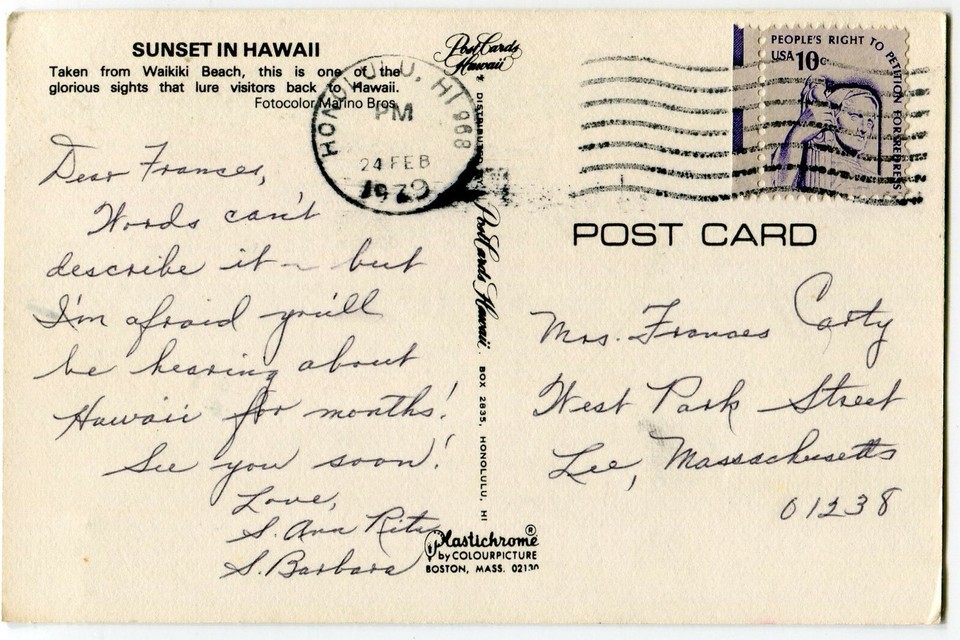 SUNSET IN HAWAII
Taken from Waikiki Beach, this is one of the
glorious sights that lure visitors back to Hawaii.
Fotocolor Marino Bros.
Dear Frances,
Words can't
describe it - but
I'm afraid you'll
be hearing about
Hawaii for months!
See you soon!
Love,
S. Ann Rita
S. Barbara
HONOLULU, HI 968
PM
24 FEB
PostCards
Hawaii
PostCards Hawaii
BOX 2835, HONOLULU, HI
Plastichrome®
by COLOURPICTURE
BOSTON, MASS. 02130
PEOPLE'S RIGHT TO PETITION FOR REDRESS
USA 10c
POST CARD
Mrs. Frances Carty
West Park Street
Lee, Massachusetts
01238